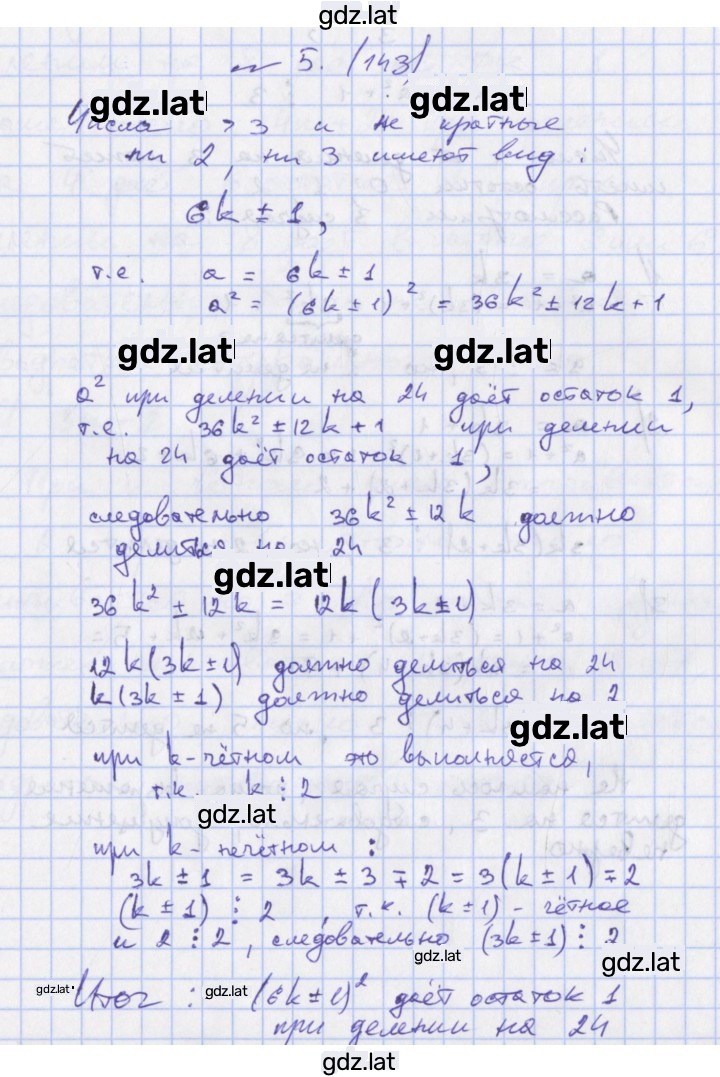 gdz.lat
№ 5. (143)
gdz.lat gdz.lat
Числа > 3 и не кратные
ни 2, ни 3 имеют вид:
6k ± 1,
т.е. a = 6k ± 1
a² = (6k ± 1)² = 36k² ± 12k + 1
gdz.lat gdz.lat
a² при делении на 24 даёт остаток 1,
т.е. 36k² ± 12k + 1 при делении
на 24 даёт остаток 1,
следовательно 36k² ± 12k должно
делиться на 24
gdz.lat
36k² ± 12k = 12k (3k ± 1)
12k (3k ± 1) должно делиться на 24
k (3k ± 1) должно делиться на 2
gdz.lat
при k - чётном это выполняется,
т.к. k ⋮ 2
gdz.lat
при k - нечётном :
3k ± 1 = 3k ± 3 ∓ 2 = 3(k ± 1) ∓ 2
(k ± 1) ⋮ 2 , т.к. (k ± 1) - чётное
и 2 ⋮ 2 , следовательно (3k ± 1) ⋮ 2
gdz.lat gdz.lat
gdz.lat Итог : gdz.lat (6k ± 1)² даёт остаток 1
при делении на 24
gdz.lat